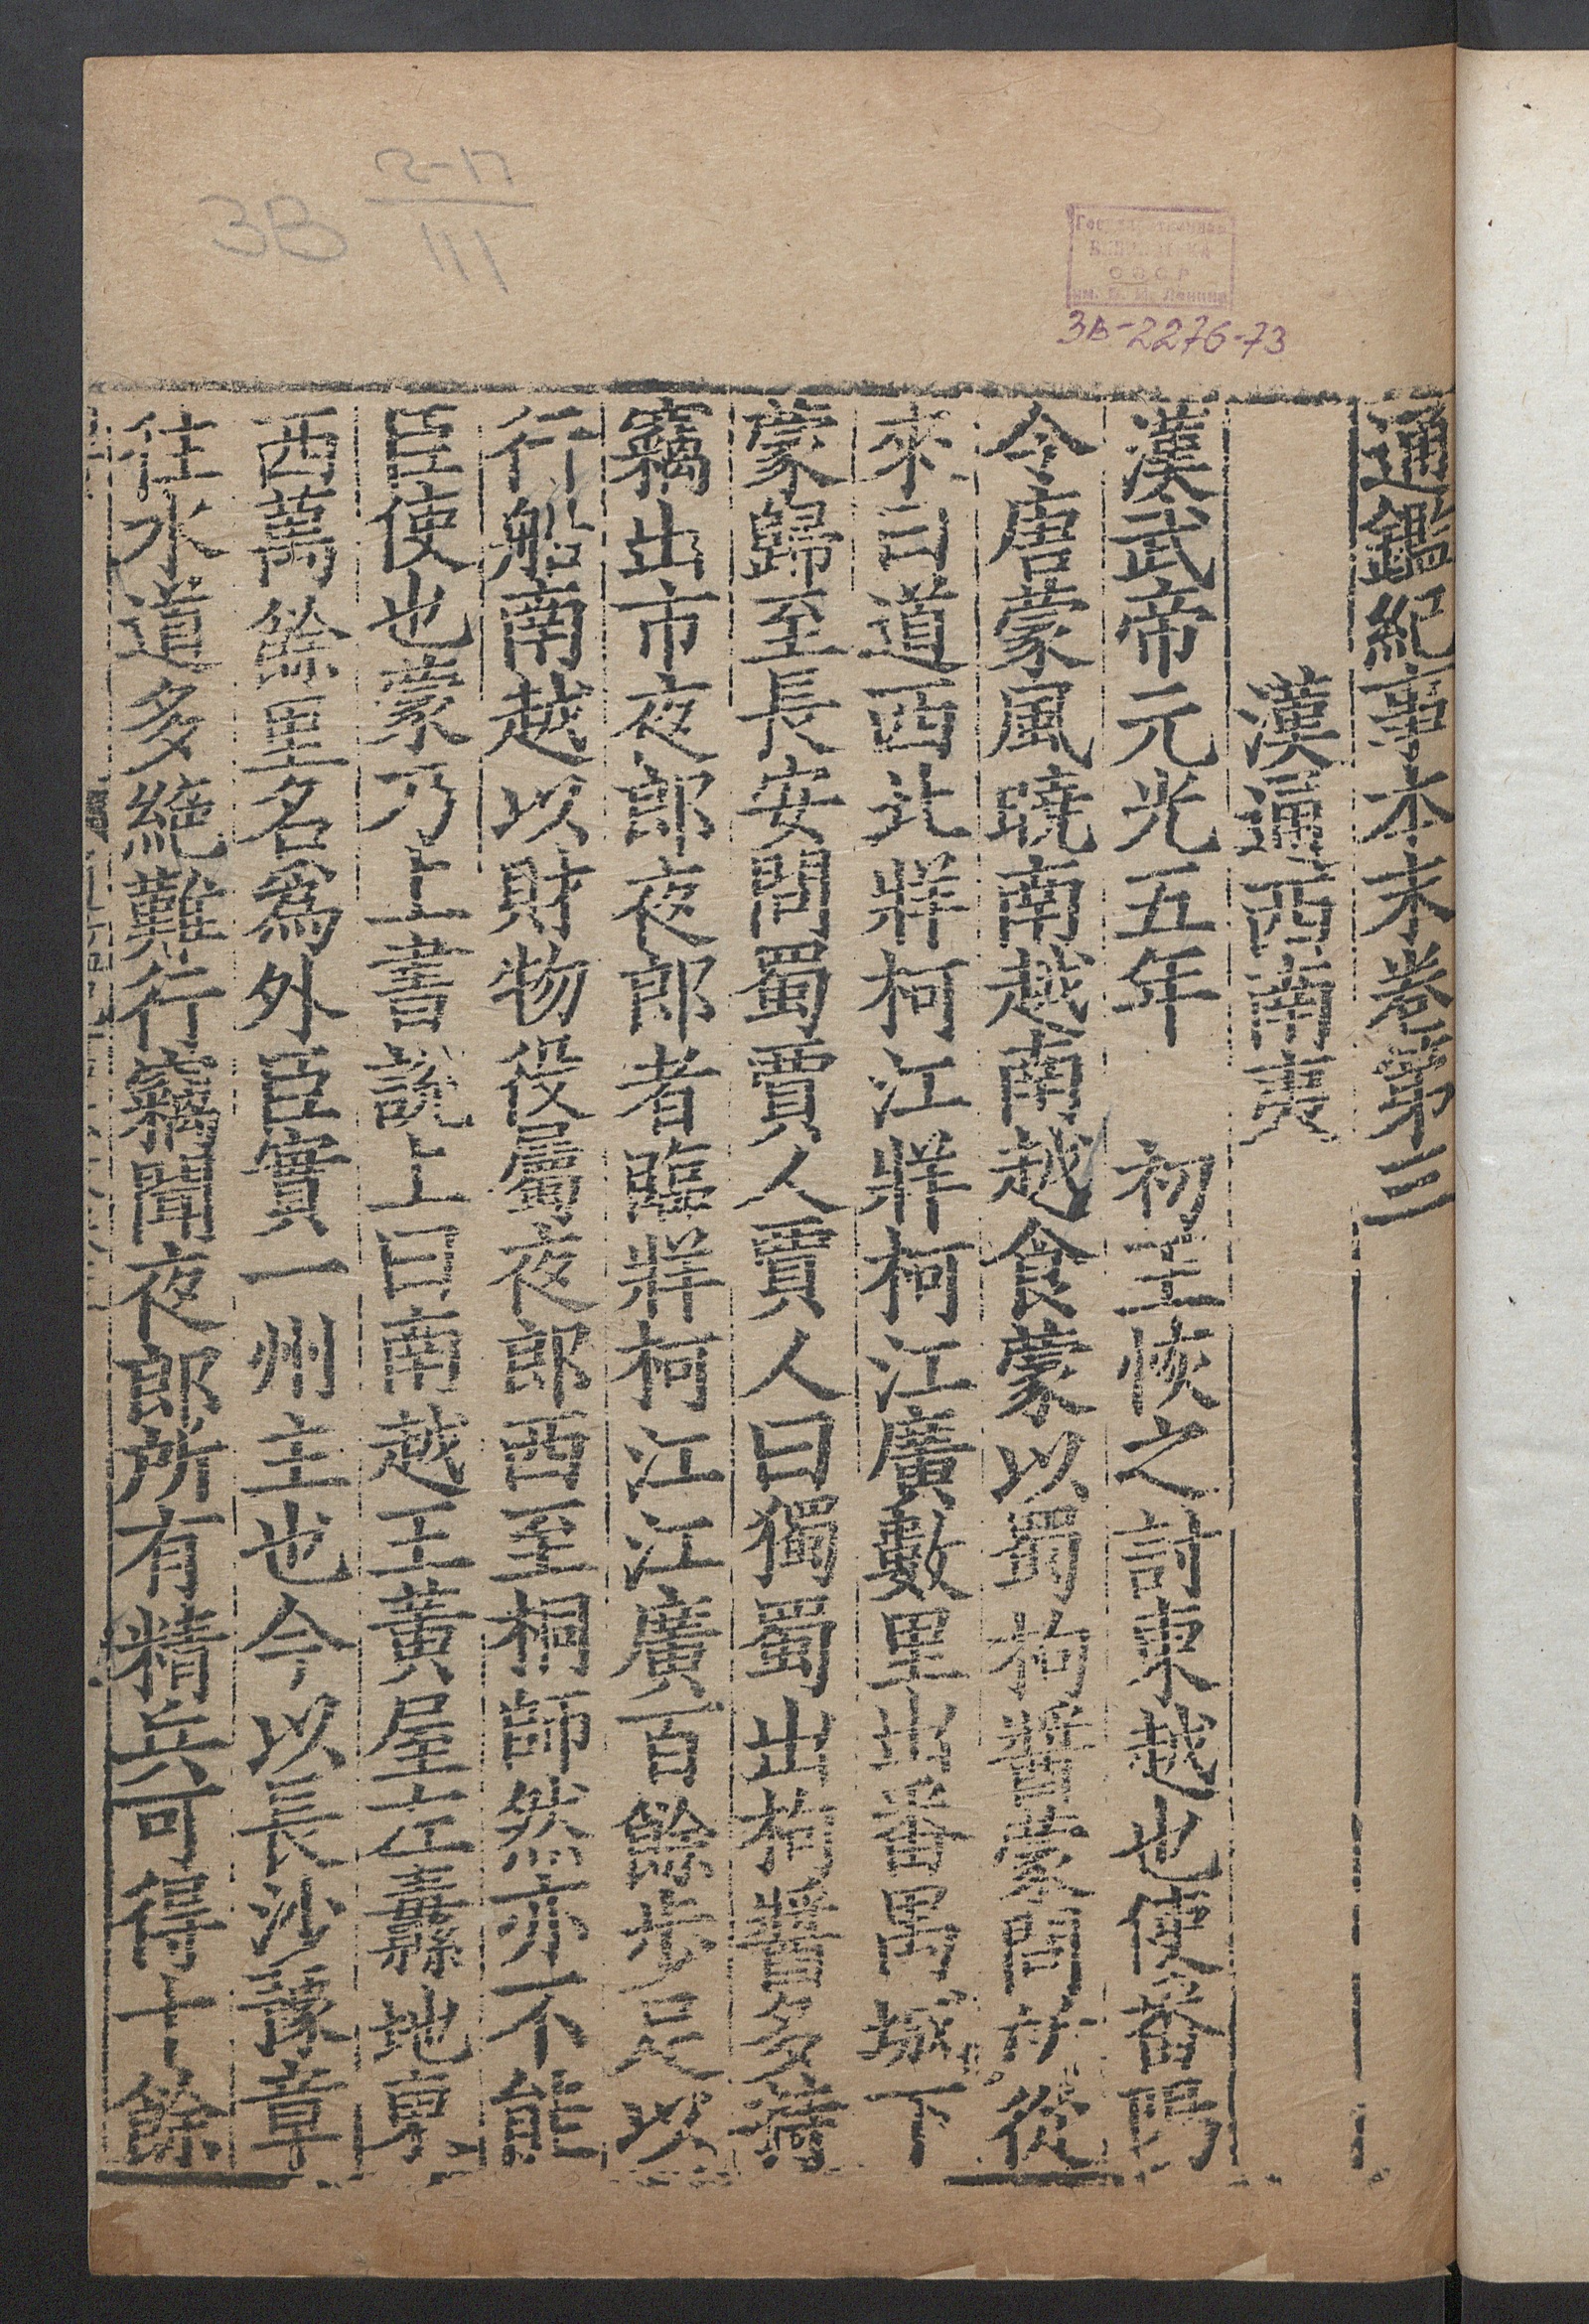 通鑑紀事本末卷第三
漢通西南夷
漢武帝元光五年　初王恢之討東越也使番陽
令唐蒙風曉南越南越食蒙以蜀枸醬蒙問所從
來曰道西北牂柯江牂柯江廣數里出番禺城下
蒙歸至長安問蜀賈人賈人曰獨蜀出枸醬多持
竊出市夜郎夜郎者臨牂柯江江廣百餘步足以
行船南越以財物役屬夜郎西至桐師然亦不能
臣使也蒙乃上書說上曰南越王黃屋左纛地東
西萬餘里名爲外臣實一州主也今以長沙豫章
往水道多絕難行竊聞夜郎所有精兵可得十餘
3B 2-17
111
Государственная
БИБЛИОТЕКА
СССР
им. В. И. Ленина
3В-2276-73